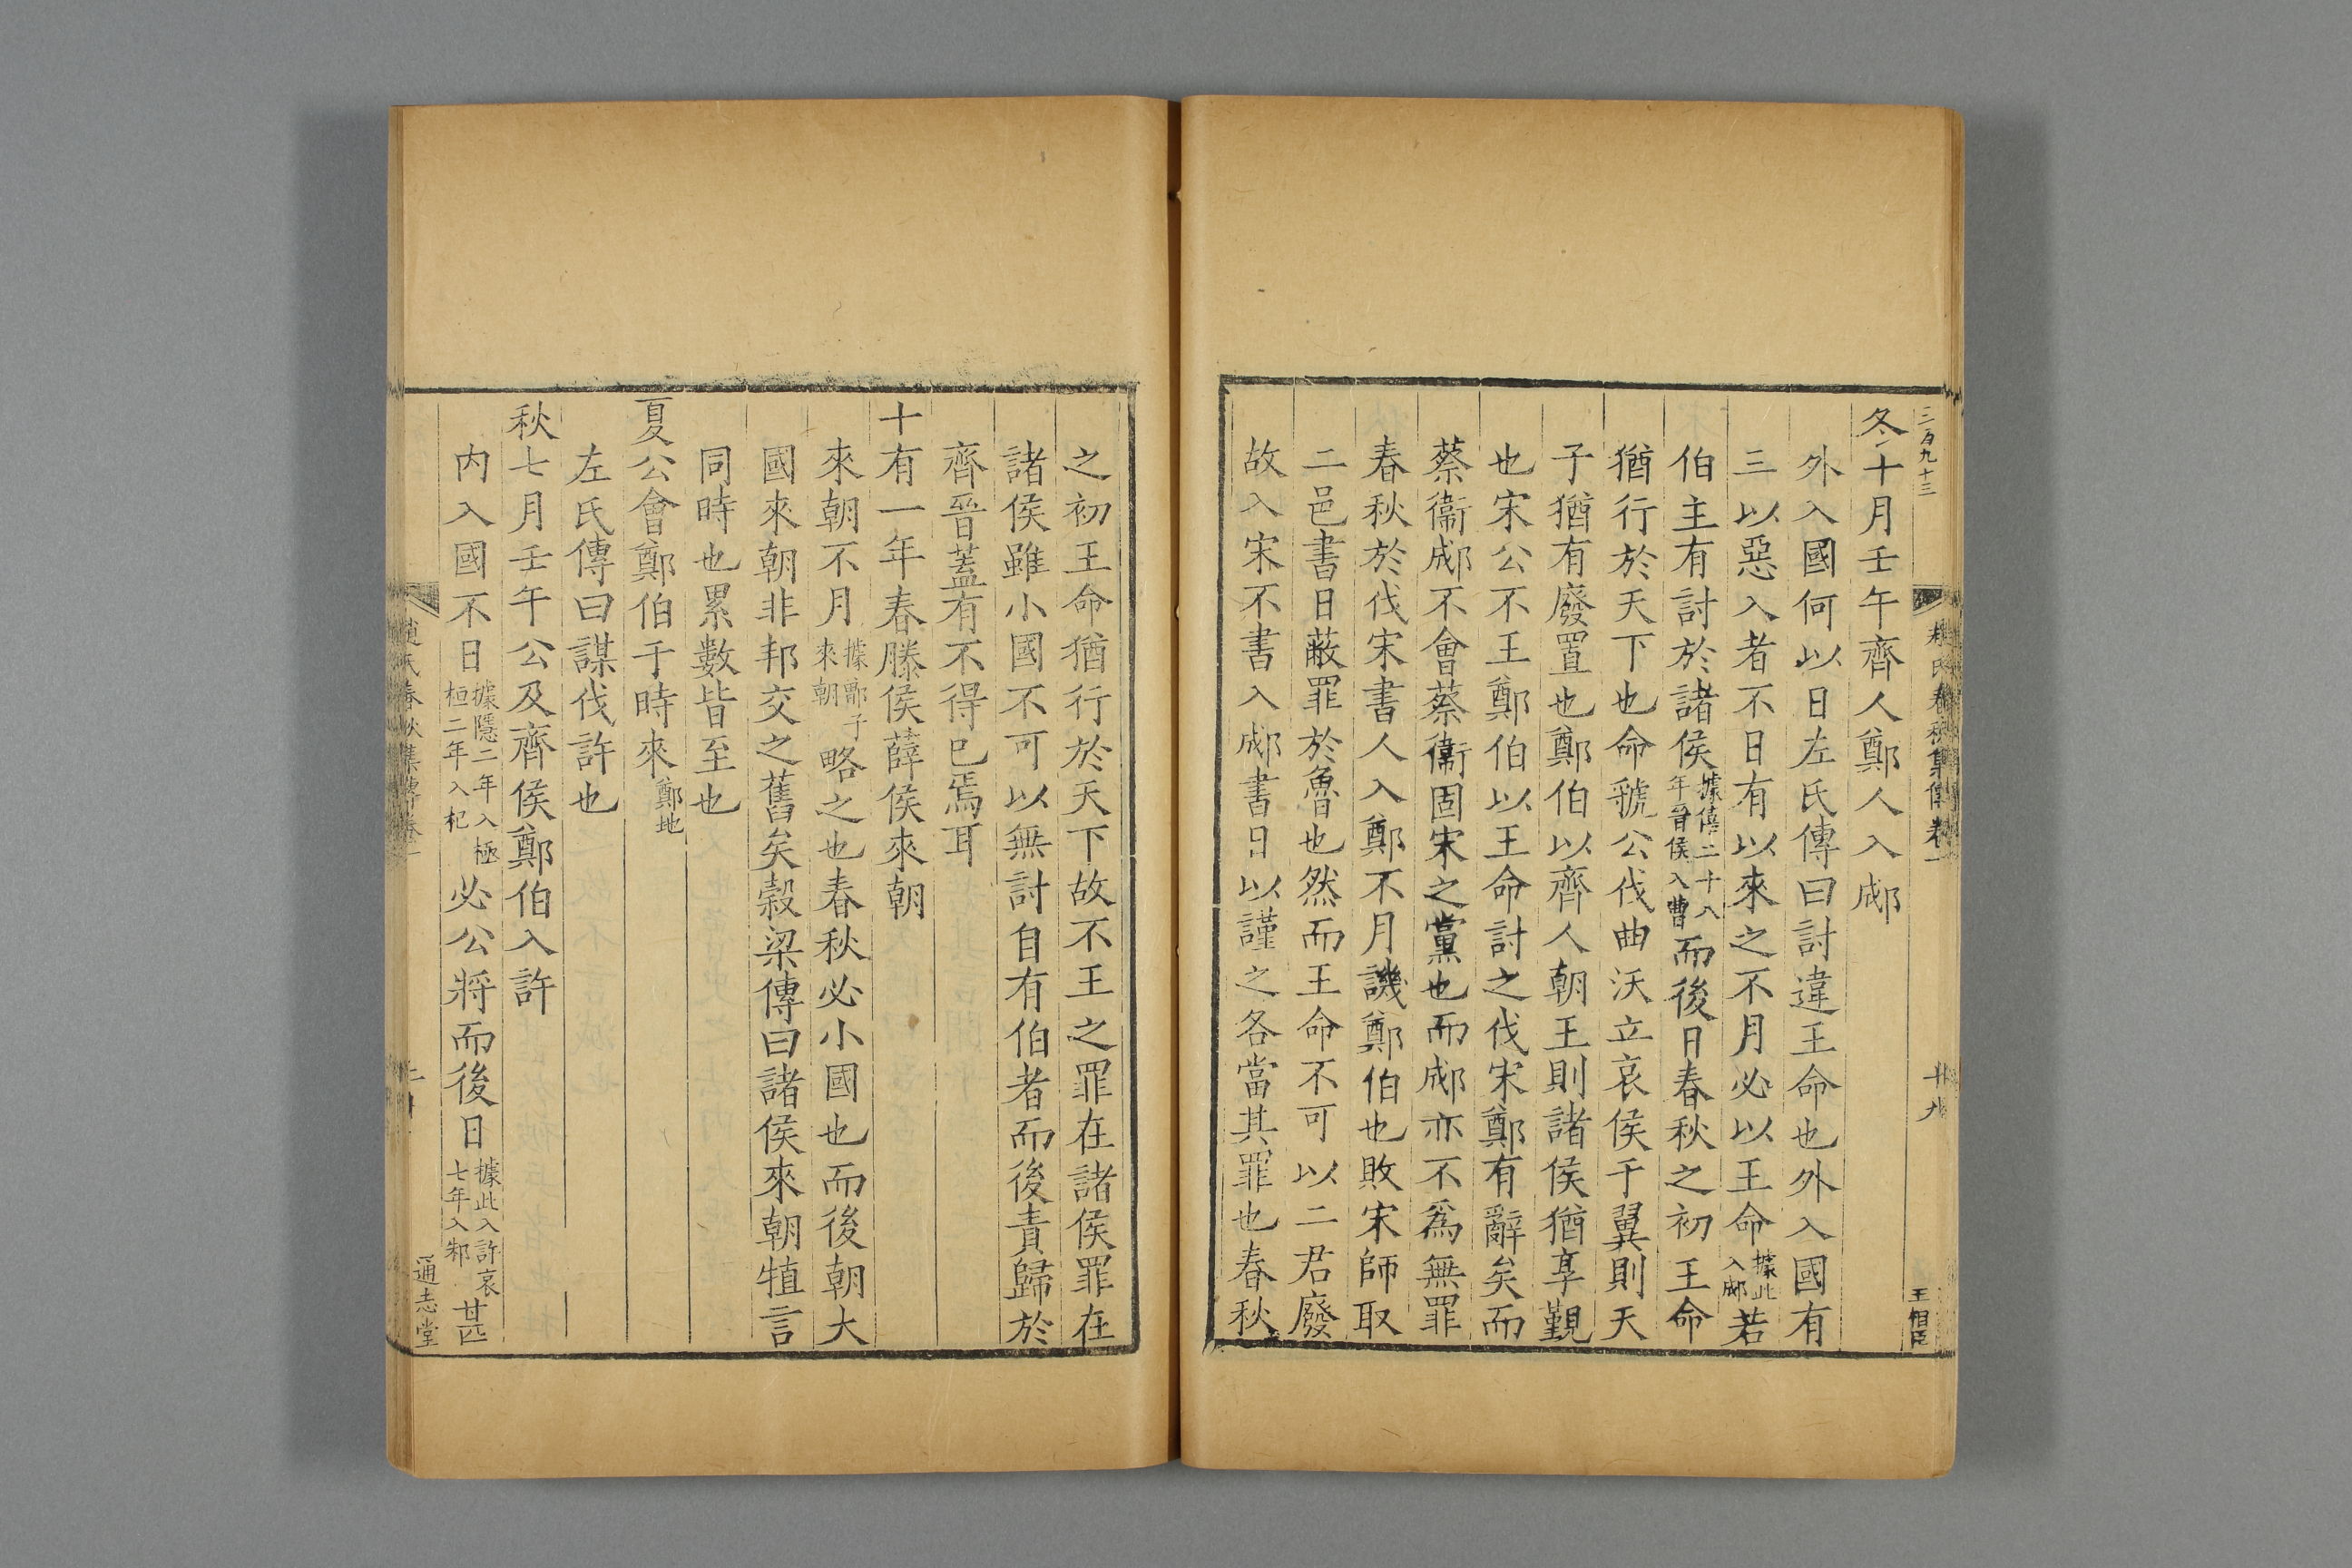 三百九十三
趙氏春秋集傳卷一
十九
王相臣
冬十月壬午齊人鄭人入郕
外入國何以日左氏傳曰討違王命也外入國有
三以惡入者不日有以來之不月必以王命據此入郕若
伯主有討於諸侯據僖二十八年晉侯入曹而後日春秋之初王命
猶行於天下也命虢公伐曲沃立哀侯于翼則天
子猶有廢置也鄭伯以齊人朝王則諸侯猶享覲
也宋公不王鄭伯以王命討之伐宋鄭有辭矣而
蔡衞郕不會蔡衞固宋之黨也而郕亦不爲無罪
春秋於伐宋書人入鄭不月譏鄭伯也敗宋師取
二邑書日蔽罪於魯也然而王命不可以二君廢
故入宋不書入郕書日以謹之各當其罪也春秋
之初王命猶行於天下故不王之罪在諸侯罪在
諸侯雖小國不可以無討自有伯者而後責歸於
齊晉蓋有不得已焉耳
十有一年春滕侯薛侯來朝
來朝不月據鄫子來朝略之也春秋必小國也而後朝大
國來朝非邦交之舊矣榖梁傳曰諸侯來朝犆言
同時也累數皆至也
夏公會鄭伯于時來鄭地
左氏傳曰謀伐許也
秋七月壬午公及齊侯鄭伯入許
内入國不日據隱二年入極桓二年入杞必公將而後日據此入許哀七年入邾甚
趙氏春秋集傳卷一
通志堂